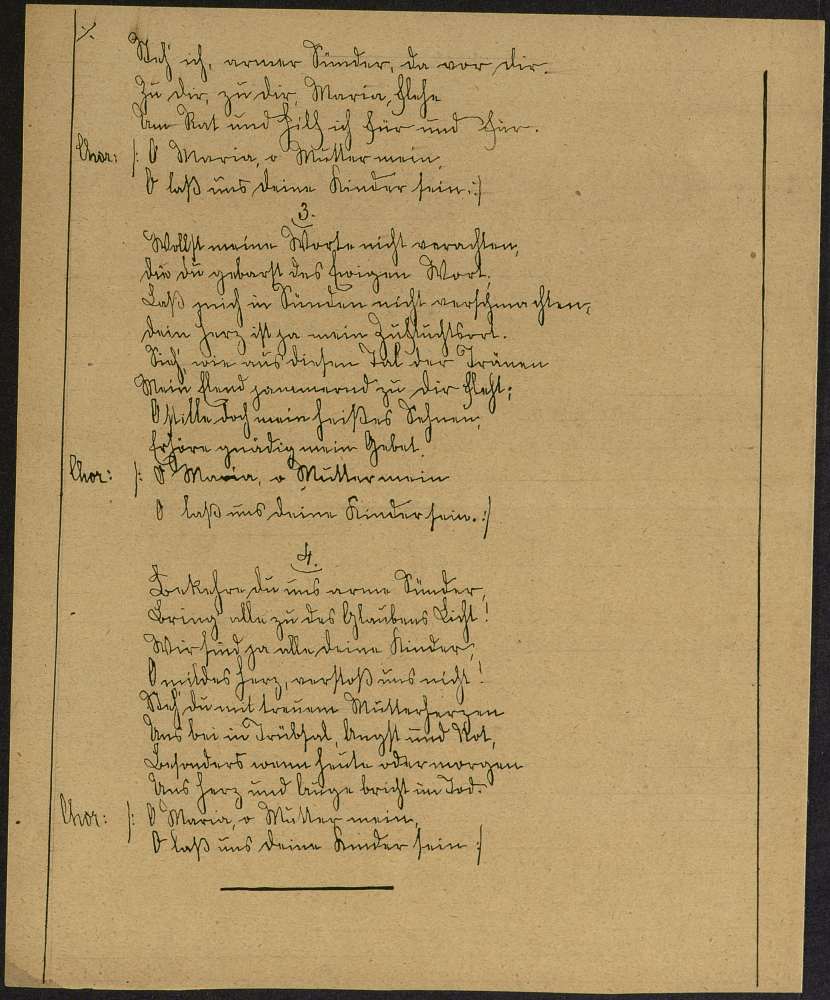 ·/.
Steh' ich, armer Sünder, da vor dir.
Zu dir, zu dir, Maria, flehe
Um Rat und Hilf ich für und für.
Chor: /: O Maria, o Mutter mein,
O laß uns deine Kinder sein. :/
3.
Wollst meine Worte nicht verachten,
die du gebarst des Ewigen Wort.
Laß mich in Sünden nicht verschmachten,
dein Herz ist ja mein Zufluchtsort.
Sieh', wie aus diesem Tal der Tränen
Mein Elend jammernd zu dir fleht;
O stille doch mein heißes Sehnen,
Erhöre gnädig mein Gebet.
Chor: /: O Maria, o Mutter mein
O laß uns deine Kinder sein. :/
4.
Bekehre du uns arme Sünder,
Bring' alle zu des Glaubens Licht!
Wir sind ja alle deine Kinder,
O mildes Herz, verstoß uns nicht!
Steh' du mit treuem Mutterherzen
Uns bei in Trübsal, Angst und Not,
Besonders wenn heute oder morgen
Uns Herz und Auge bricht im Tod.
Chor: /: O Maria, o Mutter mein,
O laß uns deine Kinder sein :/